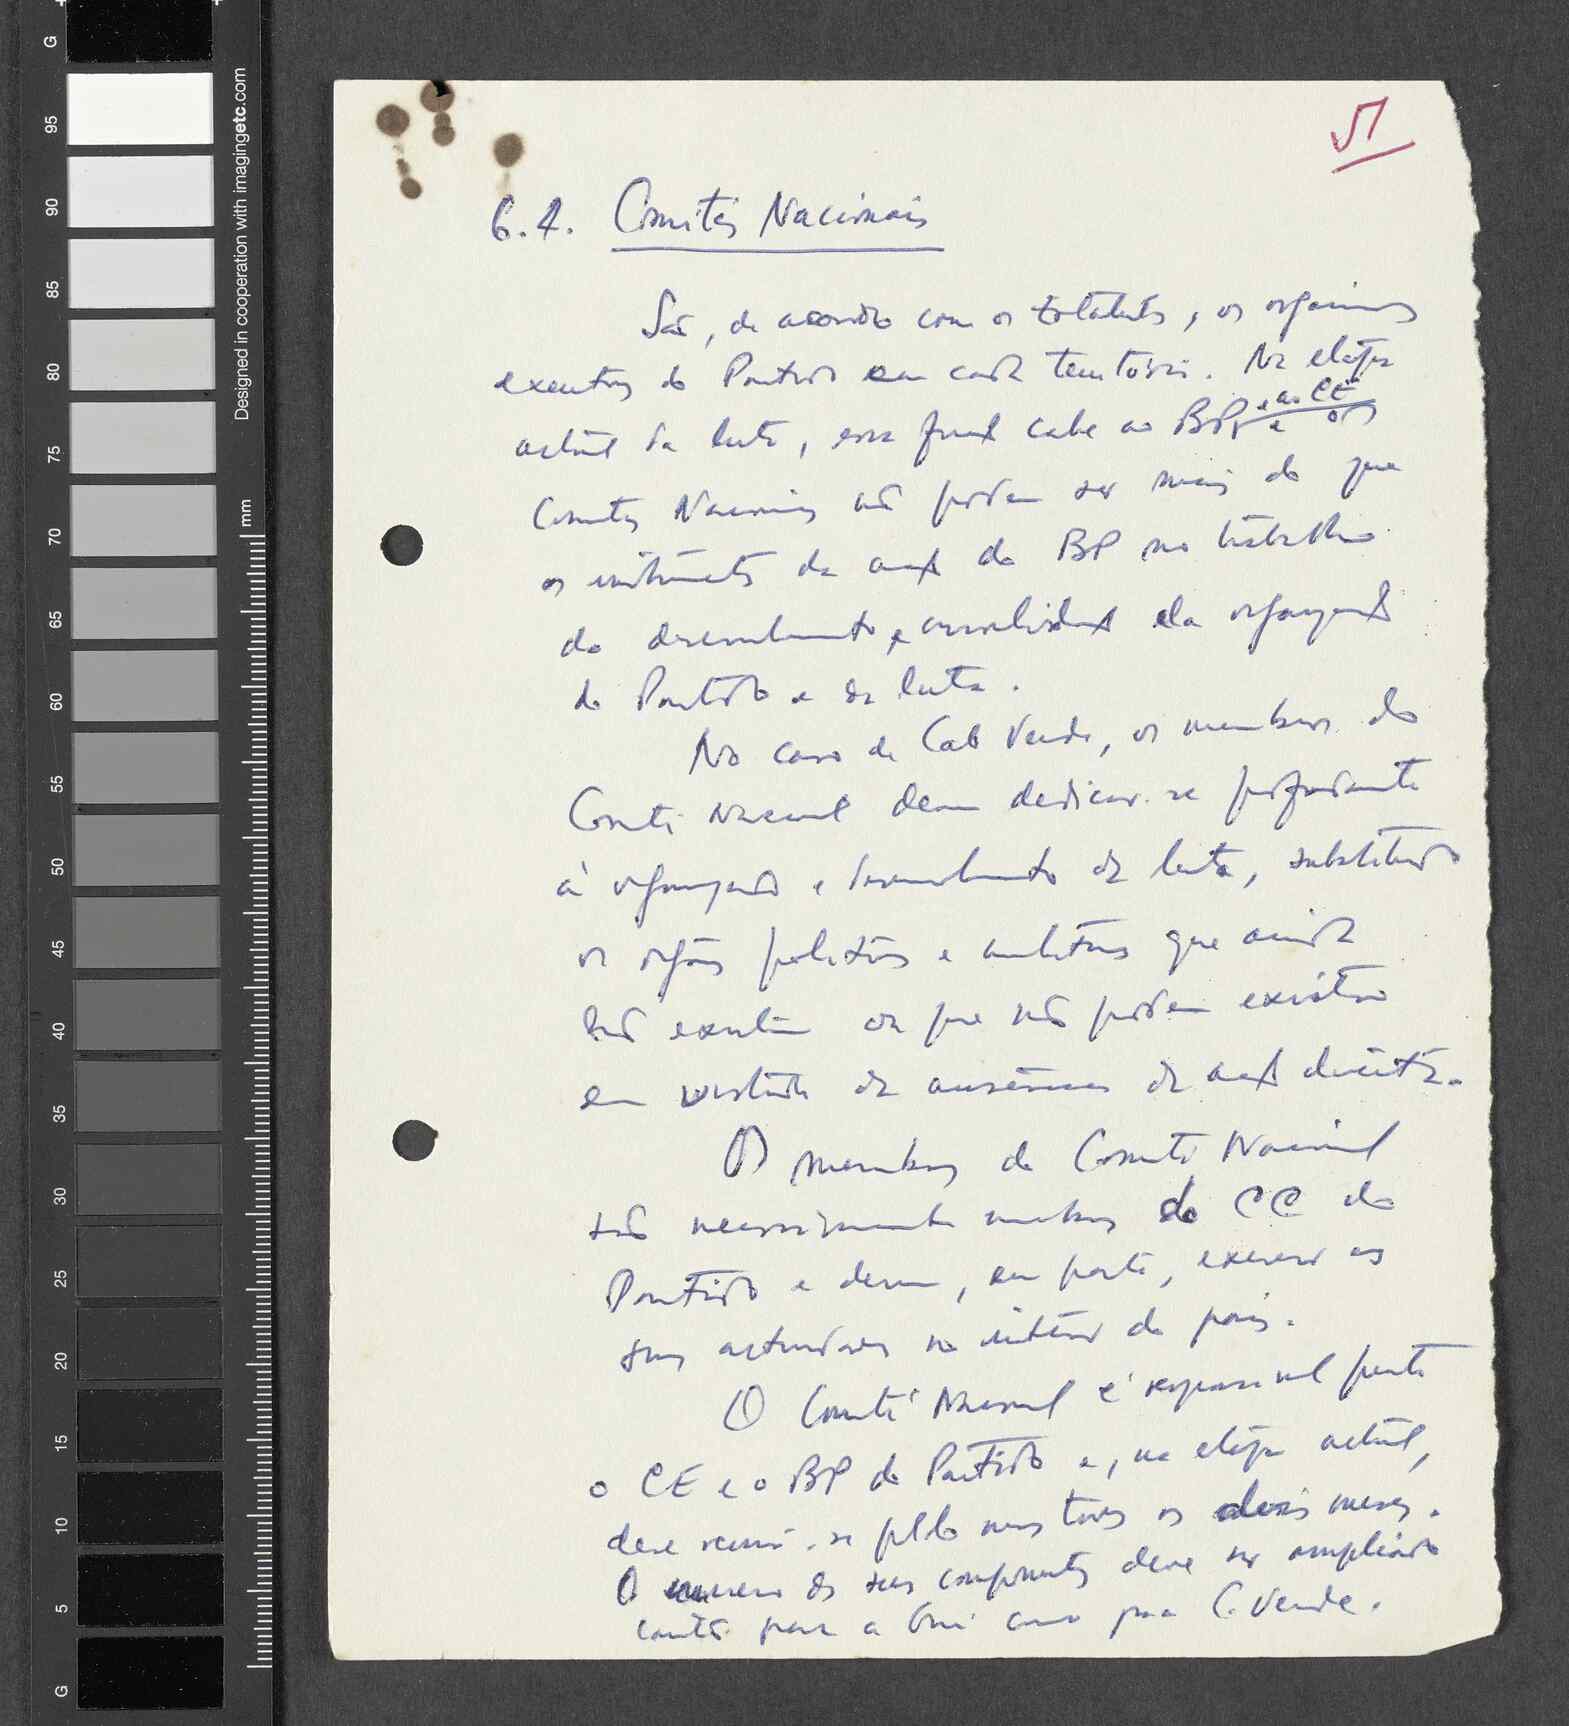 51
6.4. Comités Nacionais
São, de acordo com os Estatutos, os organismos
executivos do Partido em cada território. Na etapa
actual da luta, essa função cabe ao BP e ao CE e os
Comités Nacionais não podem ser mais do que
os instrumentos da acção do BP no trabalho
do desenvolvimento e consolidação da organização
do Partido e da luta.
No caso de Cabo Verde, os membros do
Comité Nacional devem dedicar-se profundamente
à organização e desenvolvimento da luta, substituindo
os orgãos políticos e militares que ainda
não existem ou que não podem existir
em virtude da ausência da acção directa.
Os membros do Comité Nacional
são necessariamente membros do CC do
Partido e devem, em parte, exercer as
suas actividades no interior do país.
O Comité Nacional é responsável perante
o CE e o BP do Partido e, na etapa actual,
deve reunir-se pelo menos todos os dois meses.
O número dos seus componentes deve ser ampliado
tanto para a Guiné como para C. Verde.
G
95
90
85
80
75
70
65
60
55
50
45
40
35
30
25
20
15
10
5
G
Designed in cooperation with imagingetc.com
mm